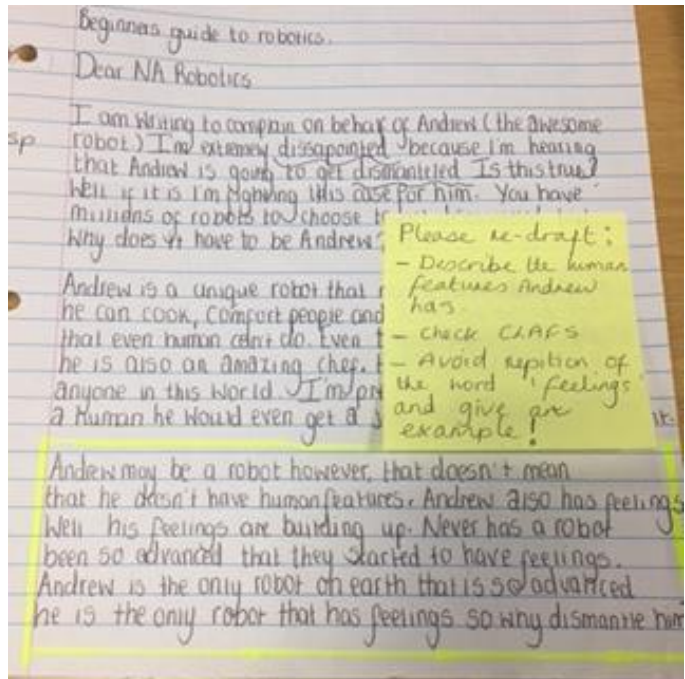 Beginners guide to robotics.
Dear NA Robotics
I am writing to complain on behalf of Andrew (the awesome
sp robot) I'm extremely dissapointed because I'm hearing
that Andrew is going to get dismanteled Is this true?
Well if it is I'm fighting this case for him. You have
millions of robots to choose
Why does it have to be Andrew?
Andrew is a unique robot that
he can cook, comfort people and
that even human can't do. Even
he is also an amazing chef.
anyone in this world. I'm
a human he would even get a
it.
Please re-draft:
- Describe the human
features Andrew
has.
- Check CLAFS
- Avoid repition of
the word 'feelings'
and give an
example!
Andrew may be a robot however, that doesn't mean
that he doesn't have human features. Andrew also has feelings
Well his feelings are building up. Never has a robot
been so advanced that they started to have feelings.
Andrew is the only robot on earth that is so advanced
he is the only robot that has feelings so why dismantle him